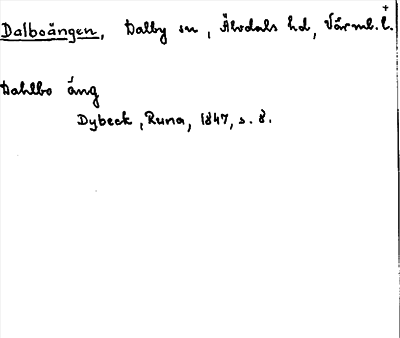 Dalboängen, Dalby sn, Älvdals hd, Värml. l.
Dahlbo äng
Dybeck, Runa, 1847, s. 8.